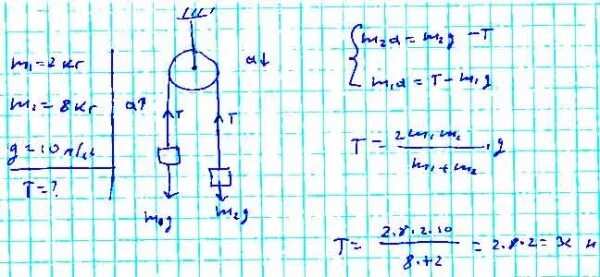 m₁=2 кг
m₂=8 кг
g=10 м/с²
T=?
a↑
a↓
T
T
m₁g
m₂g
m₂a = m₂g - T
m₁a = T - m₁g
T = 2m₁m₂ / m₁+m₂ · g
T = 2·8·2·10 / 8+2 = 2·8·2 =